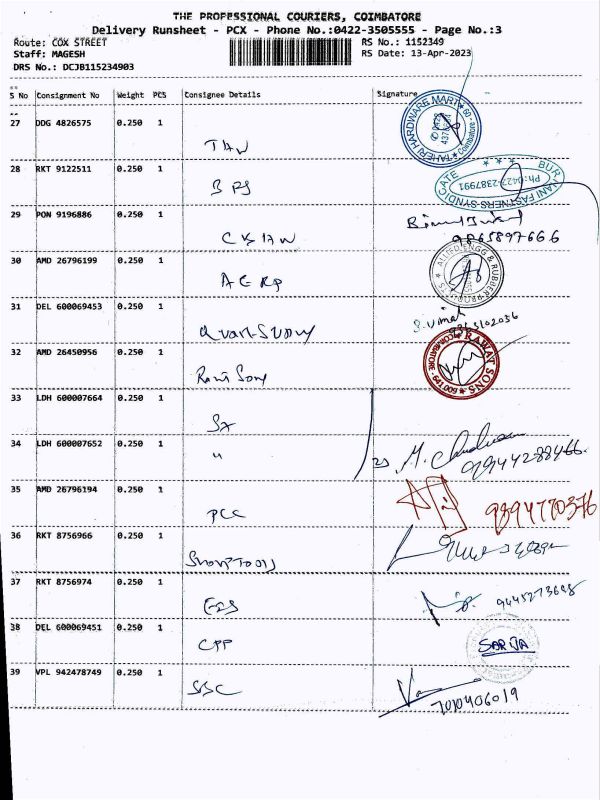 THE PROFESSIONAL COURIERS, COIMBATORE
Delivery Runsheet - PCX - Phone No.:0422-3505555 - Page No.:3
Route: COX STREET RS No.: 1152349
Staff: MAGESH RS Date: 13-Apr-2023
DRS No.: DCJB115234903
S No Consignment No Weight PCS Consignee Details Signature
27 DDG 4826575 0.250 1 TAW TAHERI HARDWARE MART Coimbatore
28 RKT 9122511 0.250 1 BFS BURHANI FASTNERS SYNDICATE Ph: 0422-2387991
29 PON 9196886 0.250 1 9865897666
30 AMD 26796199 0.250 1 AERP ALLIED ENGG & RUBBER PRODUCTS
31 DEL 600069453 0.250 1 S. Vimal
32 AMD 26450956 0.250 1 Rawt Sony RAWAT SONS COIMBATORE - 641 009
33 LDH 600007664 0.250 1
34 LDH 600007652 0.250 1 " 9944288466
35 AMD 26796194 0.250 1 PCC 9894770376
36 RKT 8756966 0.250 1
37 RKT 8756974 0.250 1 9445273698
38 DEL 600069451 0.250 1 CPP SARJA
39 VPL 942478749 0.250 1 SSC 7010406019